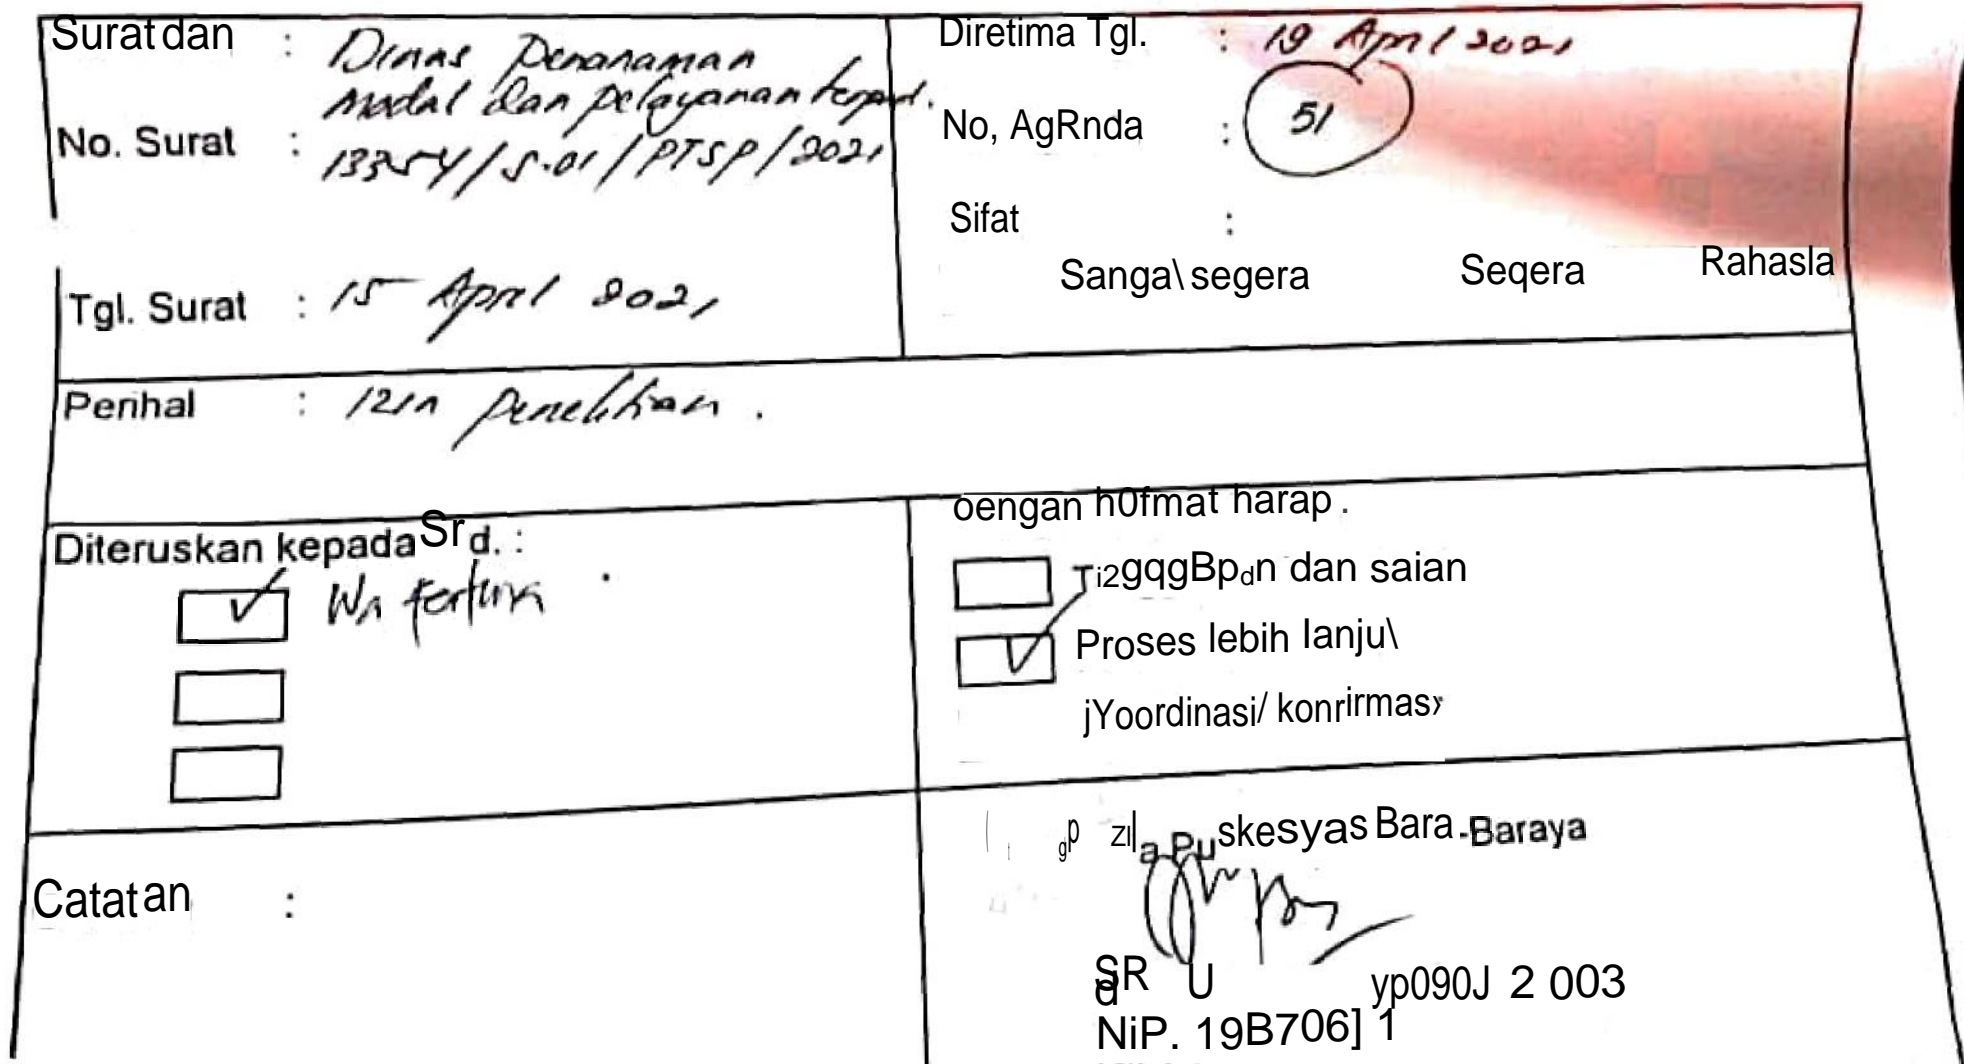 Surat dan : Dinas Penanaman
modal dan pelayanan terpad.
No. Surat : 13354/S.01/PTSP/2021
Tgl. Surat : 15 April 2021
Diretima Tgl. : 19 April 2021
No, AgRnda : 51
Sifat :
Sanga\ segera Seqera Rahasla
Perihal : Izin Penelitian .
Diteruskan kepada Srd. :
Wa
oengan h0fmat harap .
Ti2gqgBpdn dan saian
Proses lebih lanju\
jYoordinasi/ konrirmasy
Catatan :
a Puskesyas Bara-Baraya
SR U yp090J 2 003
d
NiP. 19B706] 1